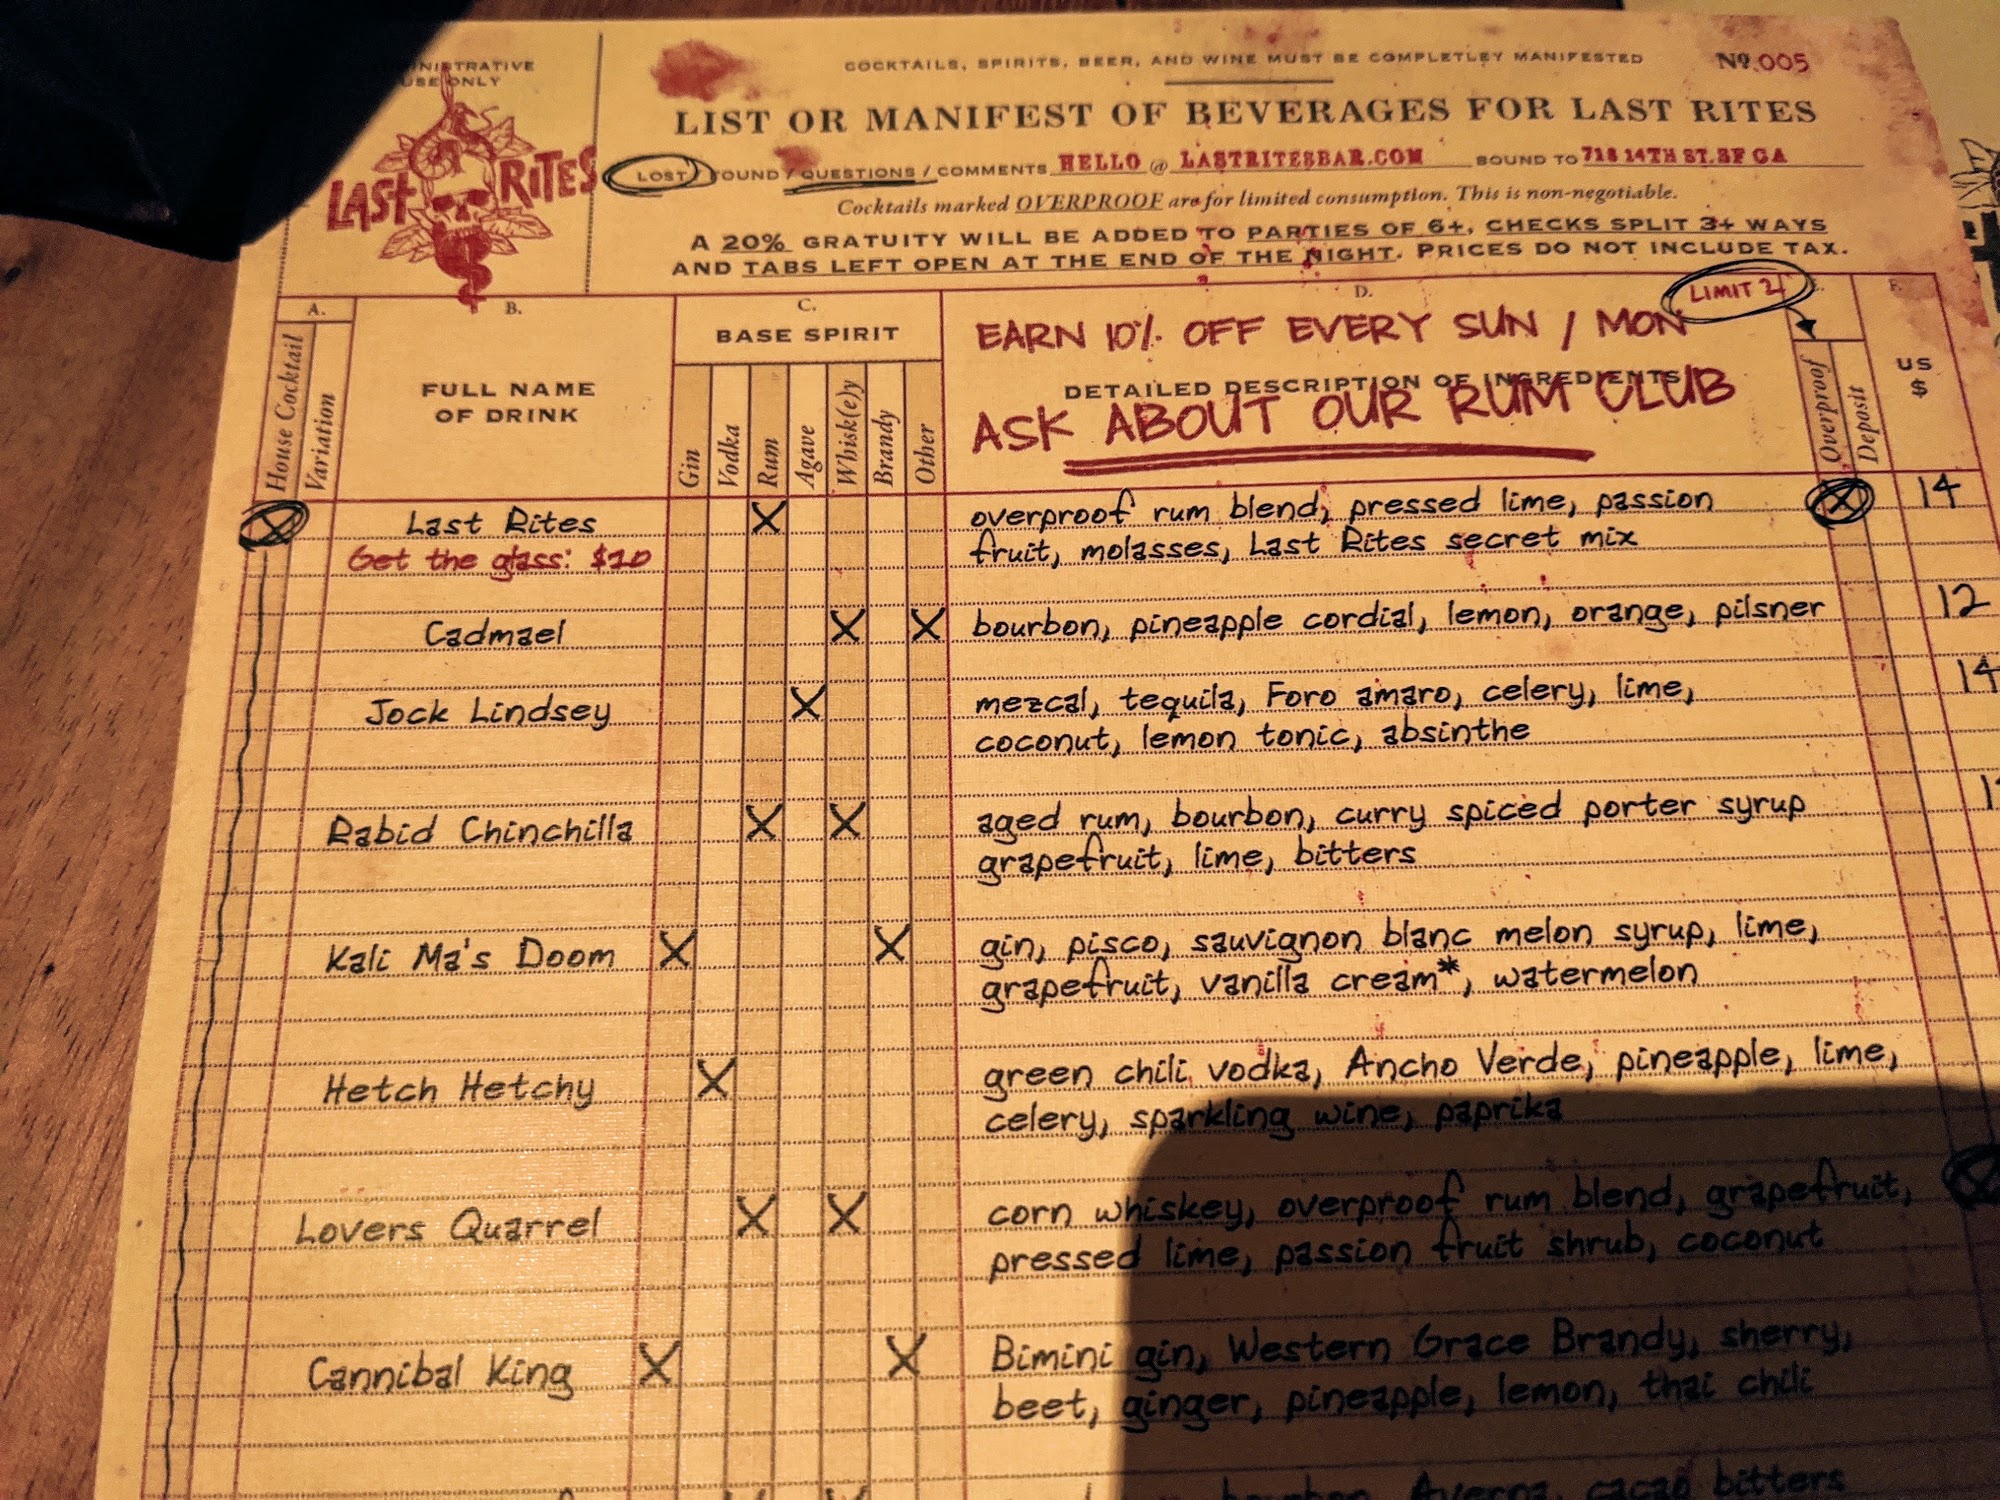 USE ONLY
LAST RITES
COCKTAILS, SPIRITS, BEER, AND WINE MUST BE COMPLETLEY MANIFESTED
Nº. 005
LIST OR MANIFEST OF BEVERAGES FOR LAST RITES
LOST / FOUND / QUESTIONS / COMMENTS HELLO @ LASTRITESBAR.COM BOUND TO 718 14TH ST. SF CA
Cocktails marked OVERPROOF are for limited consumption. This is non-negotiable.
A 20% GRATUITY WILL BE ADDED TO PARTIES OF 6+, CHECKS SPLIT 3+ WAYS
AND TABS LEFT OPEN AT THE END OF THE NIGHT. PRICES DO NOT INCLUDE TAX.
A. B. C. D. F.
LIMIT 2
House Cocktail
Variation
FULL NAME
OF DRINK
BASE SPIRIT
Gin
Vodka
Rum
Agave
Whisk(e)y
Brandy
Other
EARN 10% OFF EVERY SUN / MON
DETAILED DESCRIPTION OF INGREDIENTS
ASK ABOUT OUR RUM CLUB
Overproof
Deposit
US
$
X Last Rites X overproof rum blend, pressed lime, passion X 14
Get the glass: $20 fruit, molasses, Last Rites secret mix
Cadmael X X bourbon, pineapple cordial, lemon, orange, pilsner 12
Jock Lindsey X mezcal, tequila, Foro amaro, celery, lime, 14
coconut, lemon tonic, absinthe
Rabid Chinchilla X X aged rum, bourbon, curry spiced porter syrup
grapefruit, lime, bitters
Kali Ma's Doom X X gin, pisco, sauvignon blanc melon syrup, lime,
grapefruit, vanilla cream*, watermelon
Hetch Hetchy X green chili vodka, Ancho Verde, pineapple, lime,
celery, sparkling wine, paprika
Lovers Quarrel X X corn whiskey, overproof rum blend, grapefruit, X
pressed lime, passion fruit shrub, coconut
Cannibal King X X Bimini gin, Western Grace Brandy, sherry,
beet, ginger, pineapple, lemon, thai chili
bourbon, Averna, cacao bitters